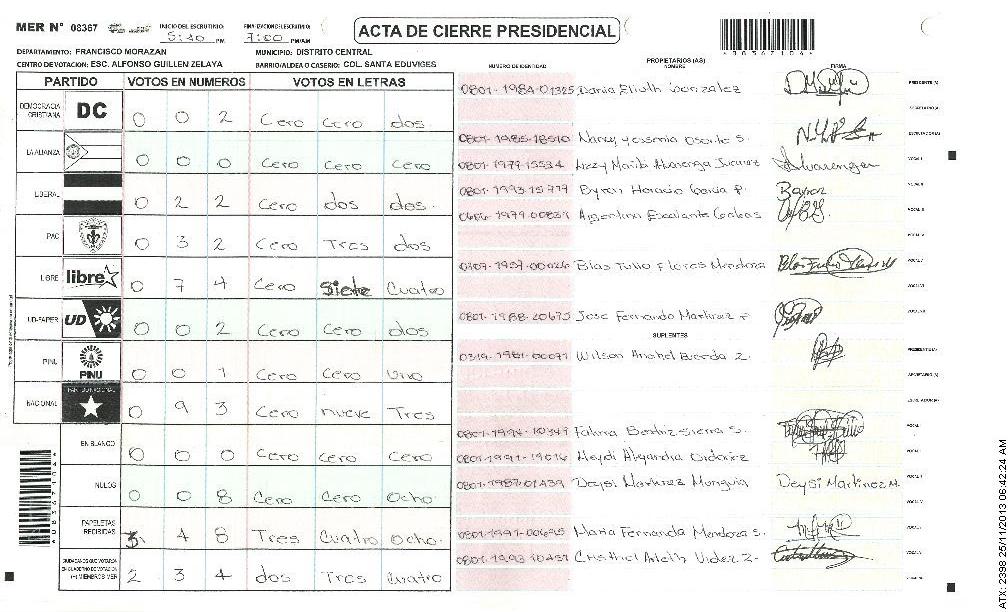 MER N° 08367 INICIO DEL ESCRUTINIO: 5:40 PM FINALIZACION ESCRUTINIO: 7:00 PM/AM
ACTA DE CIERRE PRESIDENCIAL
DEPARTAMENTO: FRANCISCO MORAZAN MUNICIPIO: DISTRITO CENTRAL
CENTRO DE VOTACION: ESC. ALFONSO GUILLEN ZELAYA BARRIO/ALDEA O CASERIO: COL. SANTA EDUVIGES
PARTIDO VOTOS EN NUMEROS VOTOS EN LETRAS
DEMOCRACIA CRISTIANA DC 0 0 2 Cero Cero dos
LA ALIANZA 0 0 0 Cero Cero Cero
LIBERAL 0 2 2 Cero dos dos.
PAC 0 3 2 Cero Tres dos
LIBRE libre 0 7 4 Cero Siete Cuatro
UD-FAPER UD 0 0 2 Cero Cero dos
PINU PINU 0 0 1 Cero Cero Uno
NACIONAL PARTIDO NACIONAL 0 9 3 Cero nueve Tres
EN BLANCO 0 0 0 Cero Cero Cero
NULOS 0 0 8 Cero Cero Ocho.
PAPELETAS RECIBIDAS 3 4 8 Tres Cuatro Ocho.
CIUDADANOS QUE VOTARON EN CUADERNO DE VOTACION (+) MIEMBROS MER 2 3 4 dos Tres Cuatro
NUMERO DE IDENTIDAD PROPIETARIOS (AS) NOMBRE FIRMA
0801-1984-01325 Dania Elieth Gonzalez PRESIDENTE(A)
SECRETARIO(A)
0801-1985-18510 Nancy Yessenia Osorto S. ESCRUTADOR(A)
0801-1977-15534 Lizzy Maribel Alvarenga Juarez Alvarenga VOCAL I
0801-1993-15777 Byron Horacio Garcia P. Byron VOCAL II
Argentina Escalante VOCAL III
VOCAL IV
0707-1957-00026 Blas Tulio Flores Mendoza VOCAL V
VOCAL VI
0801-1988-20675 Jose Fernando Martinez F
SUPLENTES
Wilson Anahel PRESIDENTE(A)
SECRETARIO(A)
ESCRUTADOR(A)
0801-1994-10349 Fatima Beatriz Sierra S. VOCAL I
0801-1991-19016 Heydi Alejandra Ordoñez
0801-1987-01439 Deysi Martinez Munguia Deysi Martinez M.
0801-1991-00695 Maria Fernanda Mendoza S.
0801-1993-10457 Cristhiel
083671046
ATX: 2398 25/11/2013 06:42:24 AM